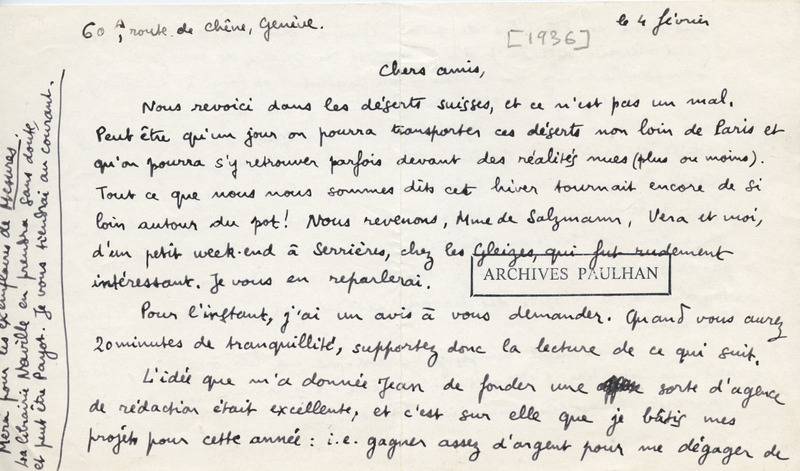 60 A, route de Chêne, Genève.
le 4 février
[1936]
Chers amis,
Nous revoici dans les déserts suisses, et ce n'est pas un mal.
Peut être qu'un jour on pourra transporter ces déserts non loin de Paris et
qu'on pourra s'y retrouver parfois devant des réalités nues (plus ou moins).
Tout ce que nous nous sommes dits cet hiver tournait encore de si
loin autour du pot! Nous revenons, Mme de Salzmann, Vera et moi,
d'un petit week-end à Serrières, chez les Gleizes, qui fut rudement
intéressant. Je vous en reparlerai.
ARCHIVES PAULHAN
Pour l'instant, j'ai un avis à vous demander. Quand vous aurez
20 minutes de tranquillité, supportez donc la lecture de ce qui suit.
L'idée que m'a donnée Jean de fonder une sorte d'agence
de rédaction était excellente, et c'est sur elle que je bâtis mes
projets pour cette année : i.e. gagner assez d'argent pour me dégager de
Merci pour les exemplaires de Mesures.
La librairie Naville en prendra sans doute,
et peut être Payot. Je vous tiendrai au courant.